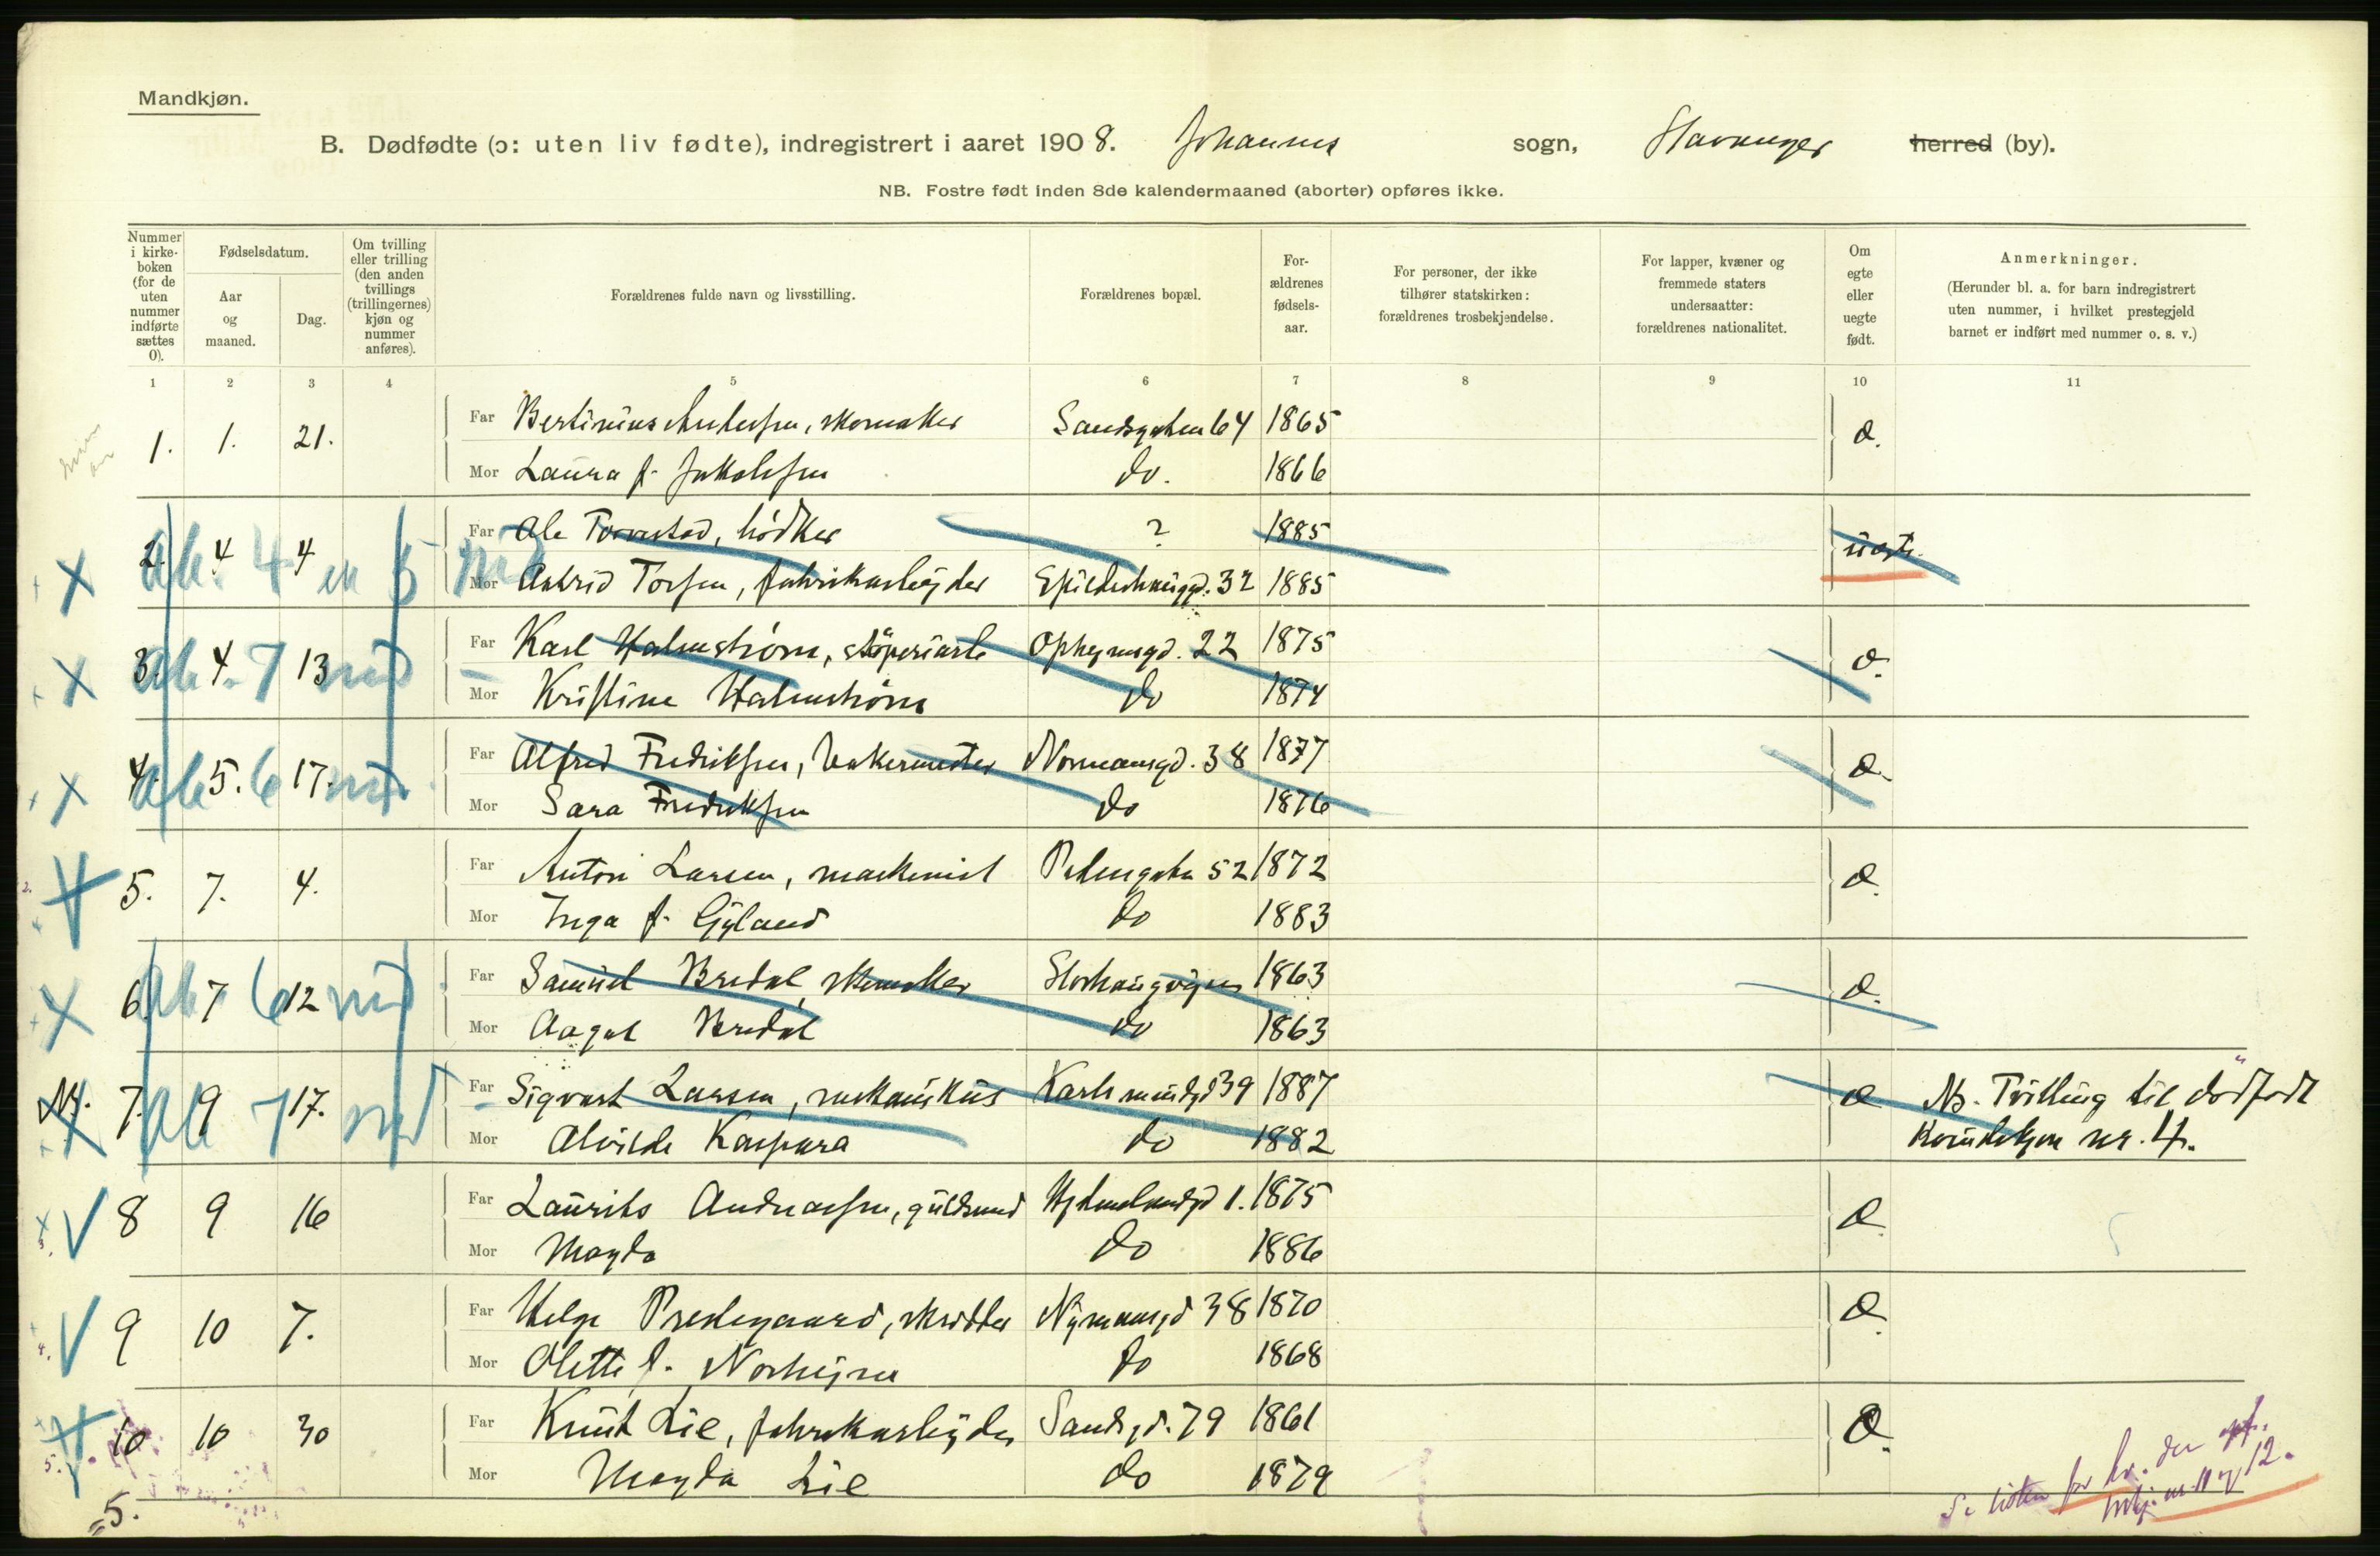 Mandkjøn.
B. Dødfødte (ɔ: uten liv fødte), indregistrert i aaret 1908. Johannes sogn, Stavanger herred (by).
NB. Fostre født inden 8de kalendermaaned (aborter) opføres ikke.
Nummer i kirke-boken (for de uten nummer indførte sættes 0).
Fødselsdatum.
Aar og maaned.
Dag.
Om tvilling eller trilling (den anden tvillings (trillingernes) kjøn og nummer anføres).
Forældrenes fulde navn og livsstilling.
Forældrenes bopæl.
For-ældrenes fødsels-aar.
For personer, der ikke tilhører statskirken: forældrenes trosbekjendelse.
For lapper, kvæner og fremmede staters undersaatter: forældrenes nationalitet.
Om egte eller uegte født.
Anmerkninger.
(Herunder bl. a. for barn indregistrert uten nummer, i hvilket prestegjeld barnet er indført med nummer o. s. v.)
1 2 3 4 5 6 7 8 9 10 11
1. 1. 21. Far Bertinius skomaker Sandsgaten 64 1865
Mor Laura f. Jakobsen do. 1866
2. 4 4 Far Ole Torvestad, bödker ? 1885 uegte.
Mor Astrid Torsen, fabrikarbeijder 32 1885
3. 4 13 Far Karl Halmström, Ophejmsgd. 22 1875
Mor Kristine Halmström do 1874
4. 5. 17. Far Alfred Fredriksen, bakermester Normansgd. 38 1877
Mor Sara Fredriksen do 1876
5. 7. 4. Far Anton Larsen, maskinist Pedersgaten 52 1872
Mor Inga f. Gyland do 1883
6. 7 12 Far Samuel Bredal, skomaker Storhaugveien 1863
Mor Aagot Bredal do 1863
7. 9 17. Far Sigvart Larsen, mekanikus 39 1887 Nb. Tvilling til dödfödt
Mor Alvilde Kaspara do 1882 Kvindekjøn nr. 4.
8 9 16 Far Laurits Andreassen, guldsmed 1. 1875
Mor Magda do 1886
9 10 7. Far Helge Prestegaard, skrædder Nymansgd 38 1870
Mor Olette f. Norheijm do 1868
10 10 30 Far Knut Lie, fabrikarbeijder Sandsgd. 79 1861
Mor Magda Lie do 1879
5.
Se listen for kv. der opf.
mkj. nr. 11 og 12.